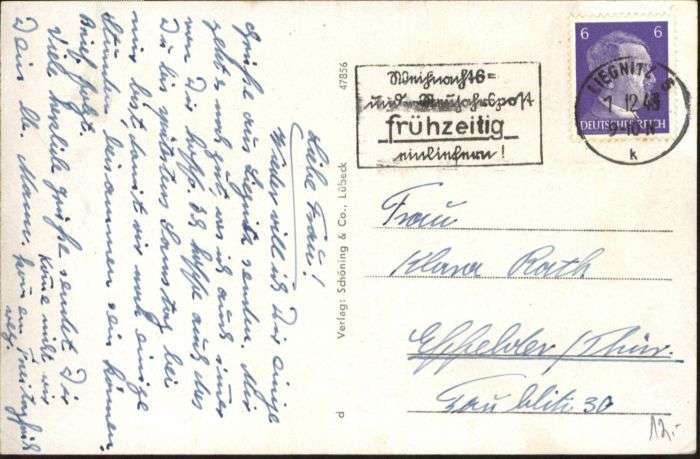 Liebe Frau!
Wieder will ich Dir einige
Grüße aus Liegnitz senden. Mir
geht es noch gut was ich auch immer
von Dir hoffe. Ich hoffe auch das
Du bis spätestens Samstag bei
mir bist damit wir noch einige
Stunden beisammen sein können.
Brief folgt.
Viele herzliche Grüße sendet Dir
Dein lb. Mann.
47856
Verlag: Schöning & Co., Lübeck
d
Weihnachts=
und Neujahrspost
frühzeitig
einliefern!
6 6
DEUTSCHES REICH
LIEGNITZ
7.12.43
k
Frau
Klara Rath
Effelder/Thür.
30
12.-